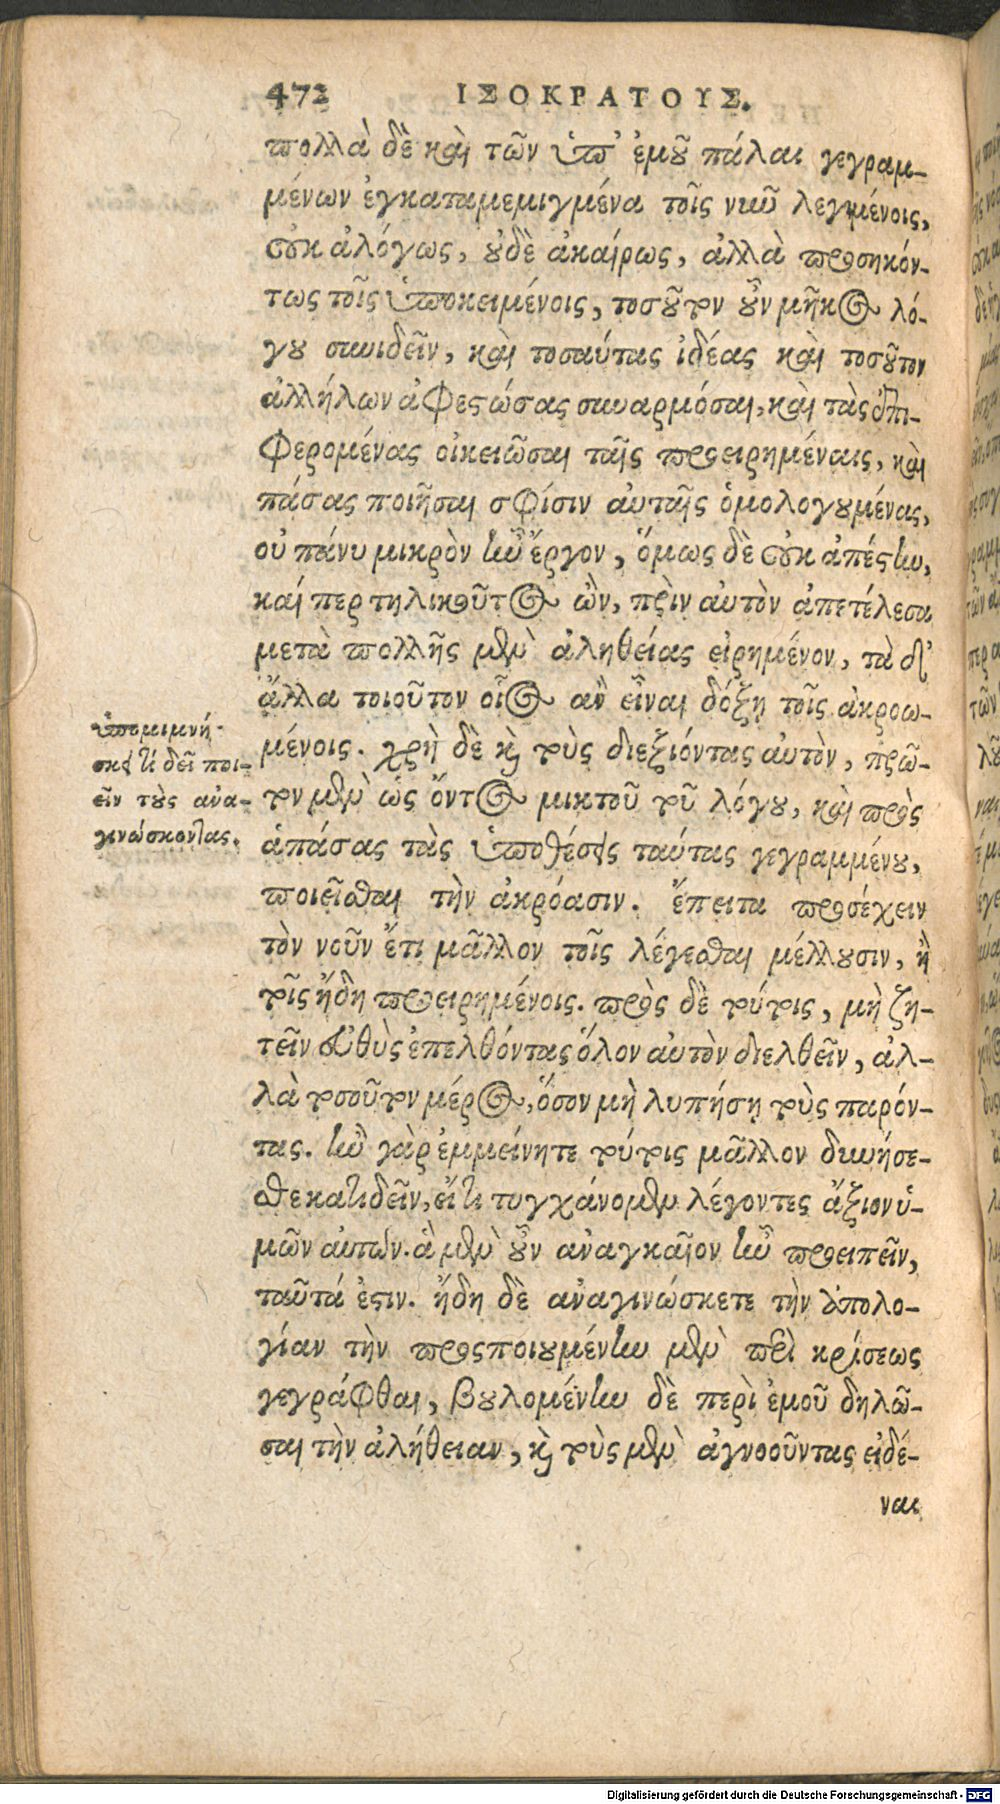 472 ΙΣΟΚΡΑΤΟΥΣ.
πολλὰ δὲ καὶ τῶν ὑπ' ἐμοῦ πάλαι γεγραμ-
μένων ἐγκαταμεμιγμένα τοῖς νῦν λεγομένοις,
οὐκ ἀλόγως, οὐδὲ ἀκαίρως, ἀλλὰ προσηκόν-
τως τοῖς ὑποκειμένοις, τοσοῦτον οὖν μῆκος λό-
γου συνιδεῖν, καὶ τοσαύτας ἰδέας καὶ τοσοῦτον
ἀλλήλων ἀφεστώσας συναρμόσαι, καὶ τὰς ἐπι-
φερομένας οἰκειῶσαι ταῖς προειρημέναις, καὶ
πάσας ποιῆσαι σφίσιν αὐταῖς ὁμολογουμένας,
οὐ πάνυ μικρὸν ἦν ἔργον, ὅμως δὲ οὐκ ἀπέστην,
καί περ τηλικοῦτος ὢν, πρὶν αὐτὸν ἀπετέλεσα
μετὰ πολλῆς μὲν ἀληθείας εἰρημένον, τὰ δ'
ἄλλα τοιοῦτον οἷος ἂν εἶναι δόξῃ τοῖς ἀκροω-
μένοις. χρὴ δὲ καὶ τοὺς διεξιόντας αὐτὸν, πρῶ-
τον μὲν ὡς ὄντος μικτοῦ τοῦ λόγου, καὶ πρὸς
ἁπάσας τὰς ὑποθέσεις ταύτας γεγραμμένου,
ποιεῖσθαι τὴν ἀκρόασιν. ἔπειτα προσέχειν
τὸν νοῦν ἔτι μᾶλλον τοῖς λέγεσθαι μέλλουσιν, ἢ
τοῖς ἤδη προειρημένοις. πρὸς δὲ τούτοις, μὴ ζη-
τεῖν εὐθὺς ἐπελθόντας ὅλον αὐτὸν διελθεῖν, ἀλ-
λὰ τοσοῦτον μέρος, ὅσον μὴ λυπήσῃ τοὺς παρόν-
τας. ἢν γὰρ ἐμμείνητε τούτοις μᾶλλον δυνήσε-
σθε κατιδεῖν, εἴ τι τυγχάνομεν λέγοντες ἄξιον ὑ-
μῶν αὐτῶν. ἃ μὲν οὖν ἀναγκαῖον ἦν προειπεῖν,
ταῦτά ἐστιν. ἤδη δὲ ἀναγινώσκετε τὴν ἀπολο-
γίαν τὴν προςποιουμένην μὲν περὶ κρίσεως
γεγράφθαι, βουλομένην δὲ περὶ ἐμοῦ δηλῶ-
σαι τὴν ἀλήθειαν, καὶ τοὺς μὲν ἀγνοοῦντας εἰδέ-
ναι
ὑπομιμνή-
σκει τί δεῖ ποι-
εῖν τοὺς ἀνα-
γινώσκοντας.
Digitalisierung gefördert durch die Deutsche Forschungsgemeinschaft - DFG